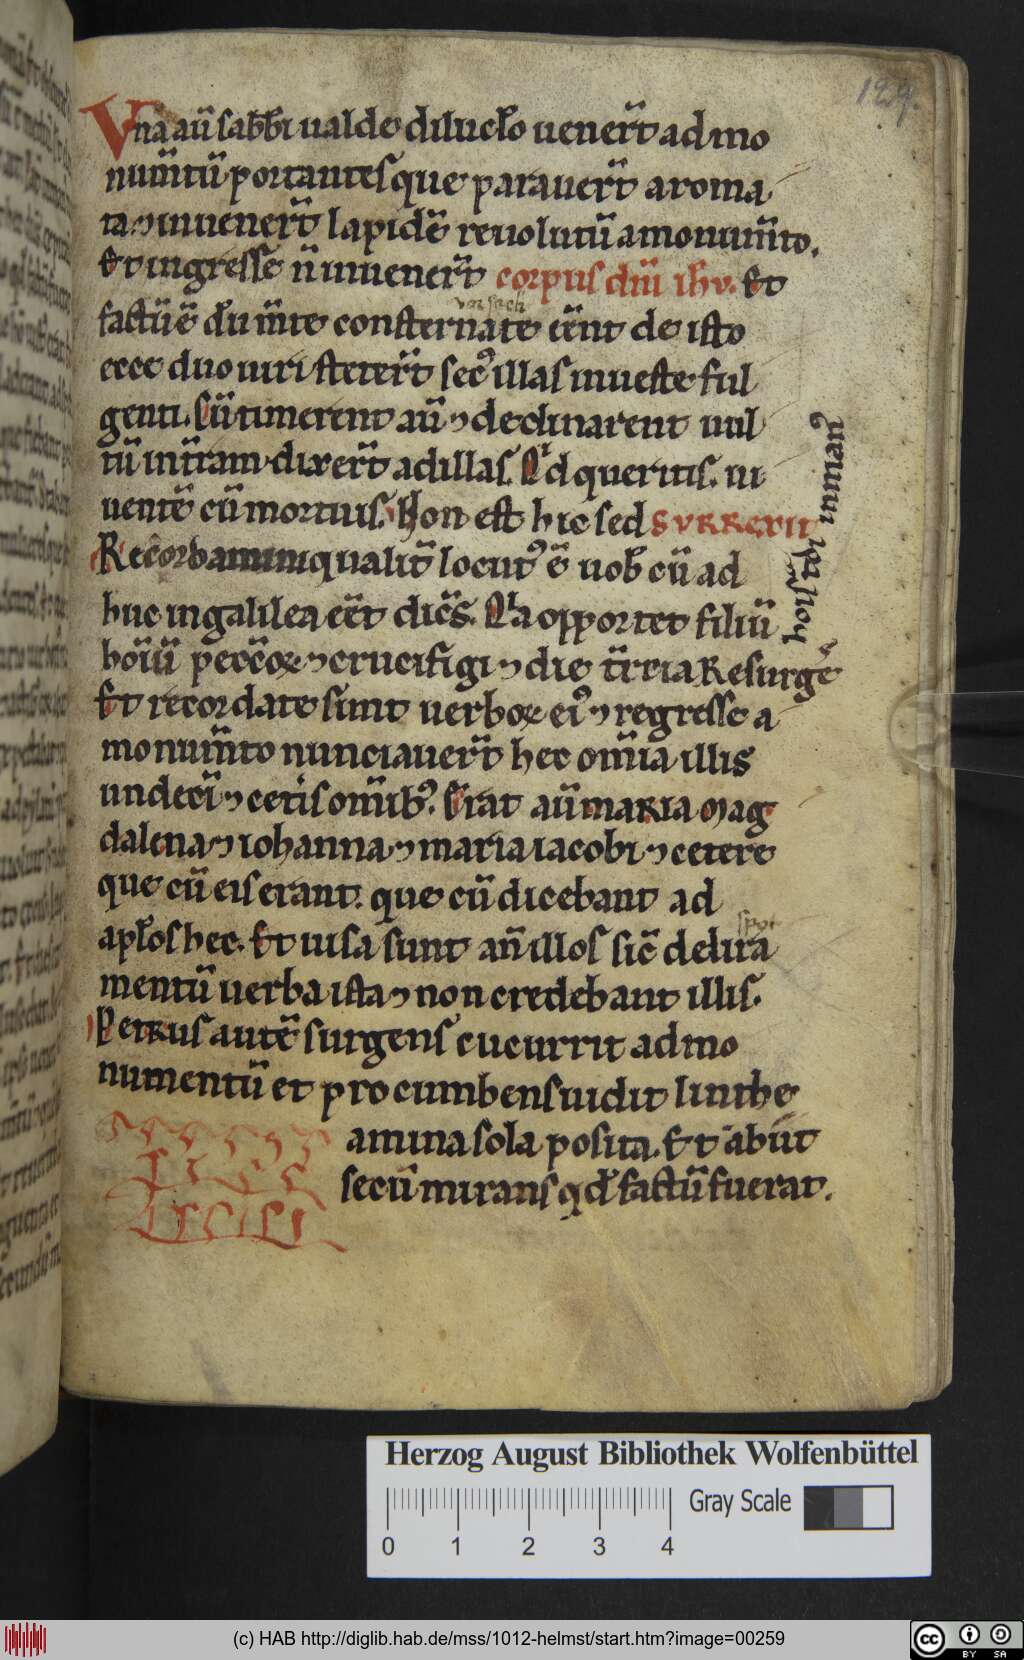 129.
Vna aū sabb̄i ualde dilucło uener̄t ad mo
num̄tū portantes que parauer̄t aroma
ta ⁊ inuener̄t lapidē reuolutū a monum̄to.
Et ingresse n̄ inuener̄t corpus dn̄i ih̄u. Et
factū ē dū m̄te consternate eēnt de isto
ecce duo uiri steter̄t sec' illas in ueste ful
genti. Cū timerent aū ⁊ declinarent uul
tū in t̄ram. dixer̄t ad illas. Qid queritis. ui
uentē cū mortuis. Non est hic sed SURREXIT
Recordamini qualit̄ locut' ē uob̄ cū ad
huc in galilea eēt dic̄s. Qa opportet filiū
hōiū peccoꝝ ⁊ crucifigi ⁊ die t̄tia Resurgē
Et recordate sunt uerboꝝ ei' ⁊ regresse a
monum̄to nunciauer̄t hec om̄ia illis
undeci ⁊ cetis om̄ib'. Erat aū maria mag
dalena ⁊ iohanna ⁊ maria iacobi ⁊ cetere
que cū eis erant. que cū dicebant ad
apłos hec. Et uisa sunt an̄ illos sic̄ delira
mentū uerba ista ⁊ non credebant illis.
Petrus autē surgens cucurrit ad mo
numentū et procumbens uidit linthe
amina sola posita. Et abiit
secū mirans qd̄ factū fuerat.
Herzog August Bibliothek Wolfenbüttel
0 1 2 3 4
Gray Scale
(c) HAB http://diglib.hab.de/mss/1012-helmst/start.htm?image=00259
cc BY SA